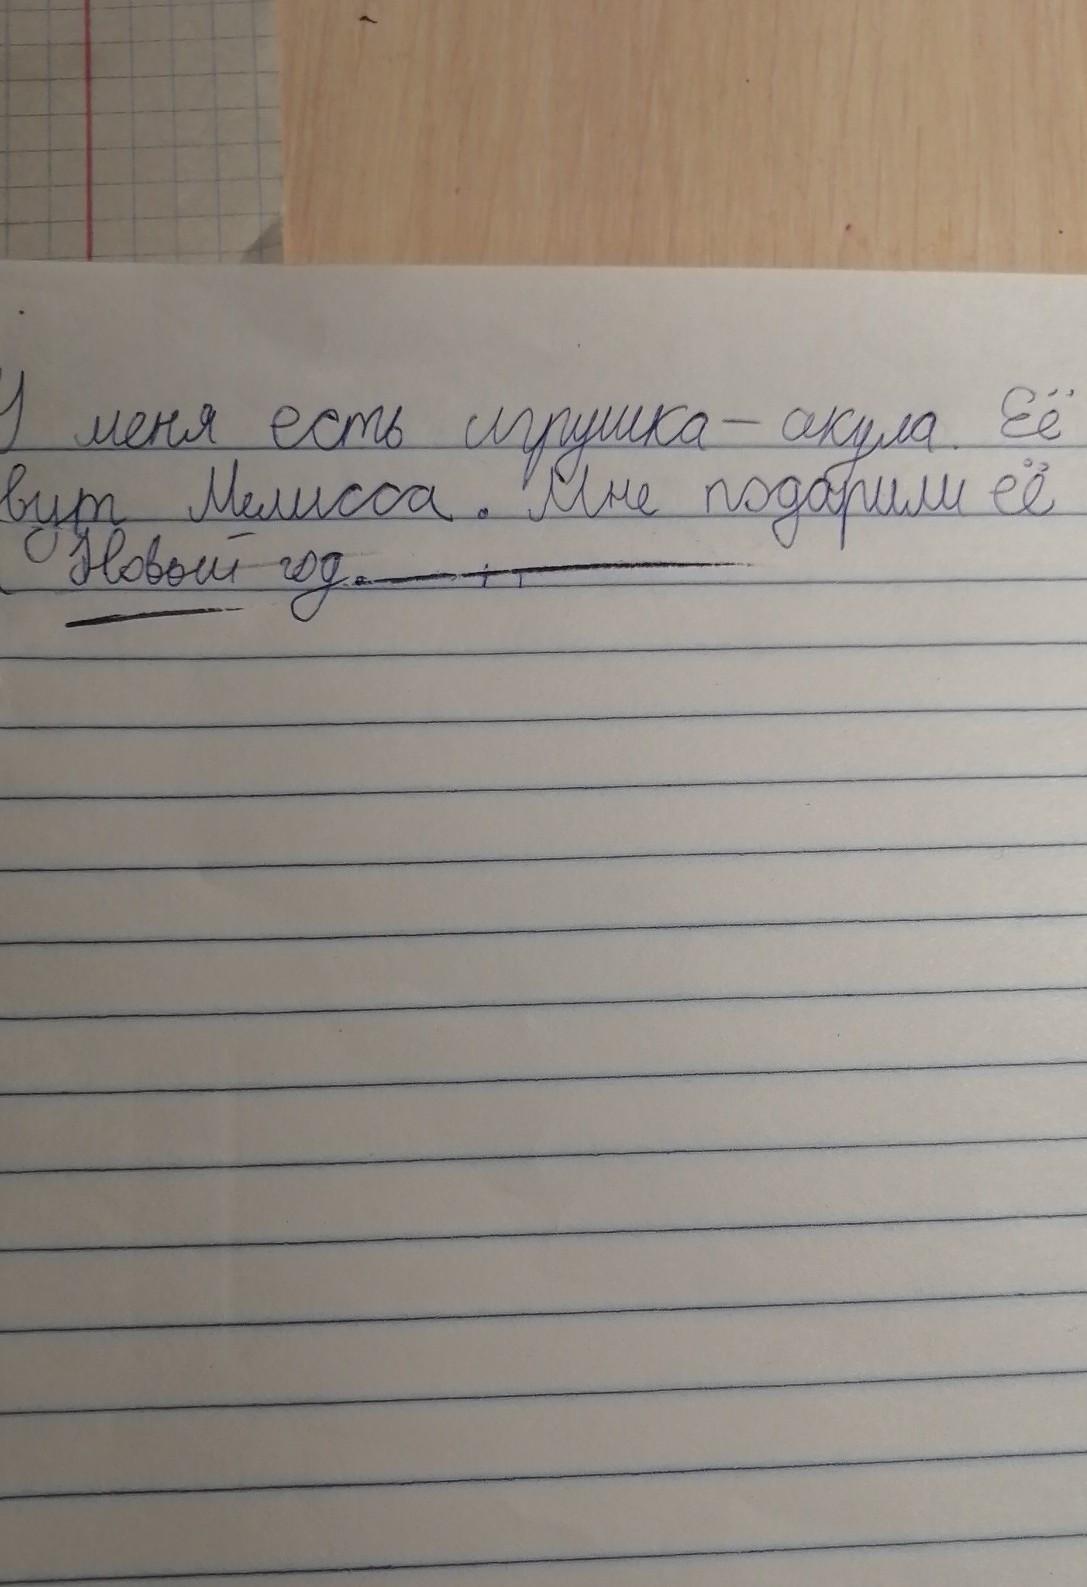 У меня есть игрушка – акула. Её
вут Мелисса. Мне подарили её
Новый год.